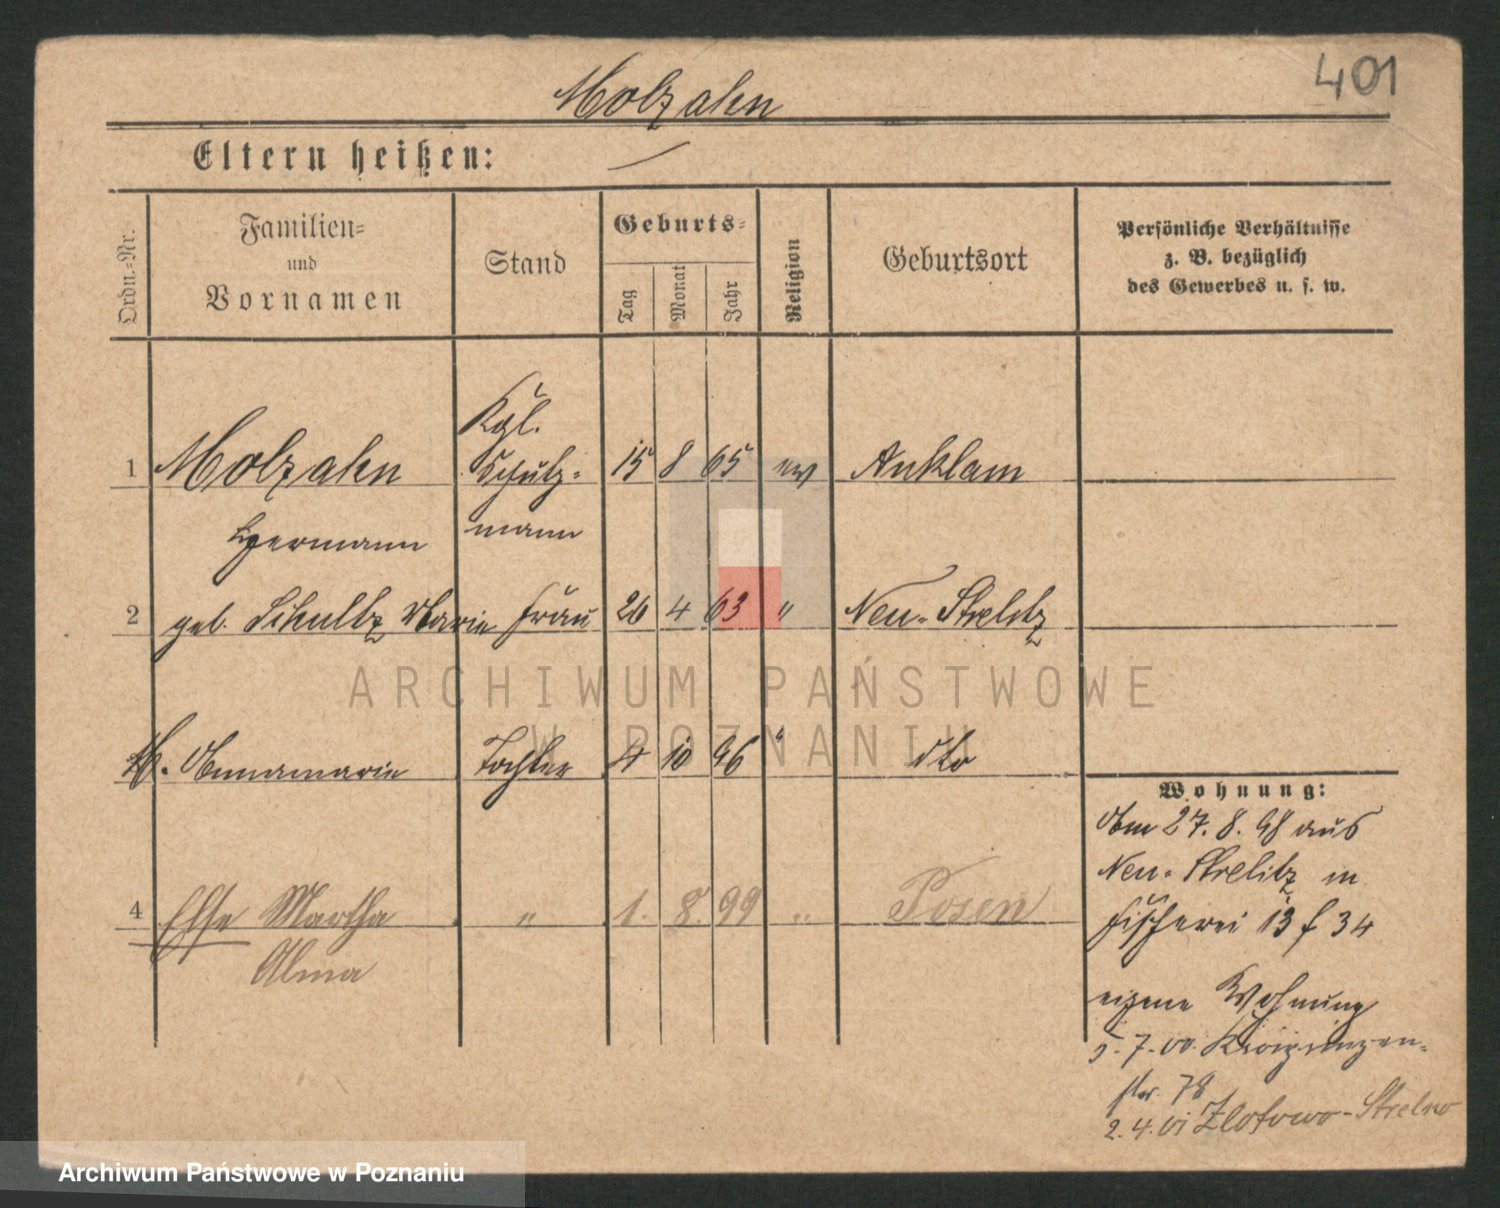 401
Molzahn
Eltern heißen: —
Ordn.-Nr.
Familien-
und
Vornamen
Stand
Geburts-
Tag
Monat
Jahr
Religion
Geburtsort
Persönliche Verhältnisse
z. B. bezüglich
des Gewerbes u. s. w.
Kgl.
1 Molzahn Schutz- 15 8 65 ev Anklam
Hermann mann
2 geb. Schultz Marie Frau 26 4 63 " Neu-Strelitz
Annamarie Tochter 4 10 96 " dto
Wohnung:
Am 27. 8. 98 aus
Neu-Strelitz in
4 Else Martha " 1. 8. 99 " Posen
Fischerei 13 f 34
Alma
eigene Wohnung
5. 7. 00.
str. 78
2. 4. 01 Zlotowo-Strelno
ARCHIWUM PAŃSTWOWE
W POZNANIU
Archiwum Państwowe w Poznaniu